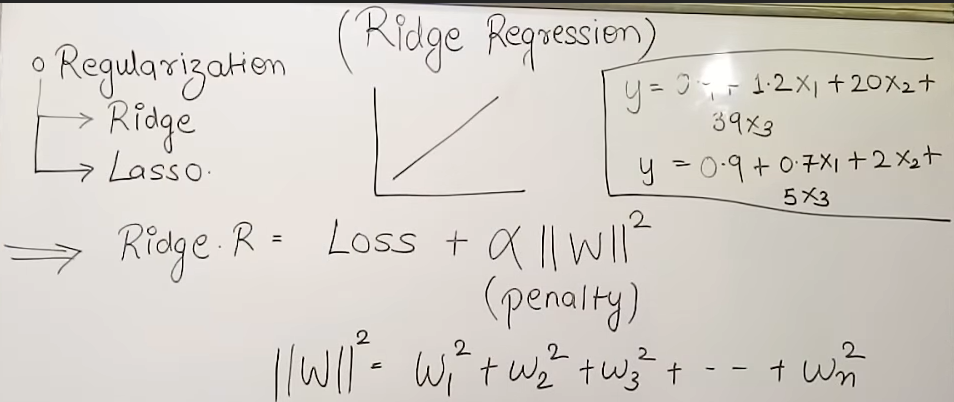 (Ridge Regression)
○ Regularization
→ Ridge
→ Lasso.
y = 1.2x₁ + 20x₂ +
39x₃
y = 0.9 + 0.7x₁ + 2x₂ +
5x₃
⇒ Ridge.R = Loss + α ||W||²
(penalty)
||W||² = W₁² + W₂² + W₃² + - - + Wn²